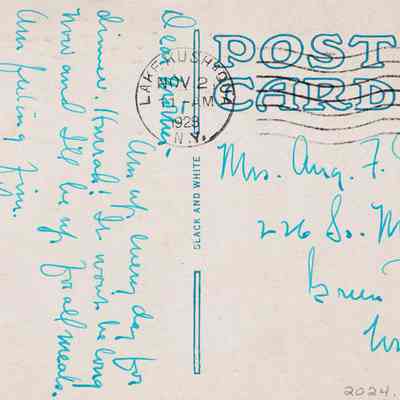 Dear
Am up every day for
dinner. Hurrah! It wont be long
now and I'll be up for all meals.
Am feeling fine.
LAKE KUSHAQUA
NOV 2
1 AM
1929
N.Y.
BLACK AND WHITE
POST
CARD
Mrs. Aug. F.
226 So. M
Green
2024.